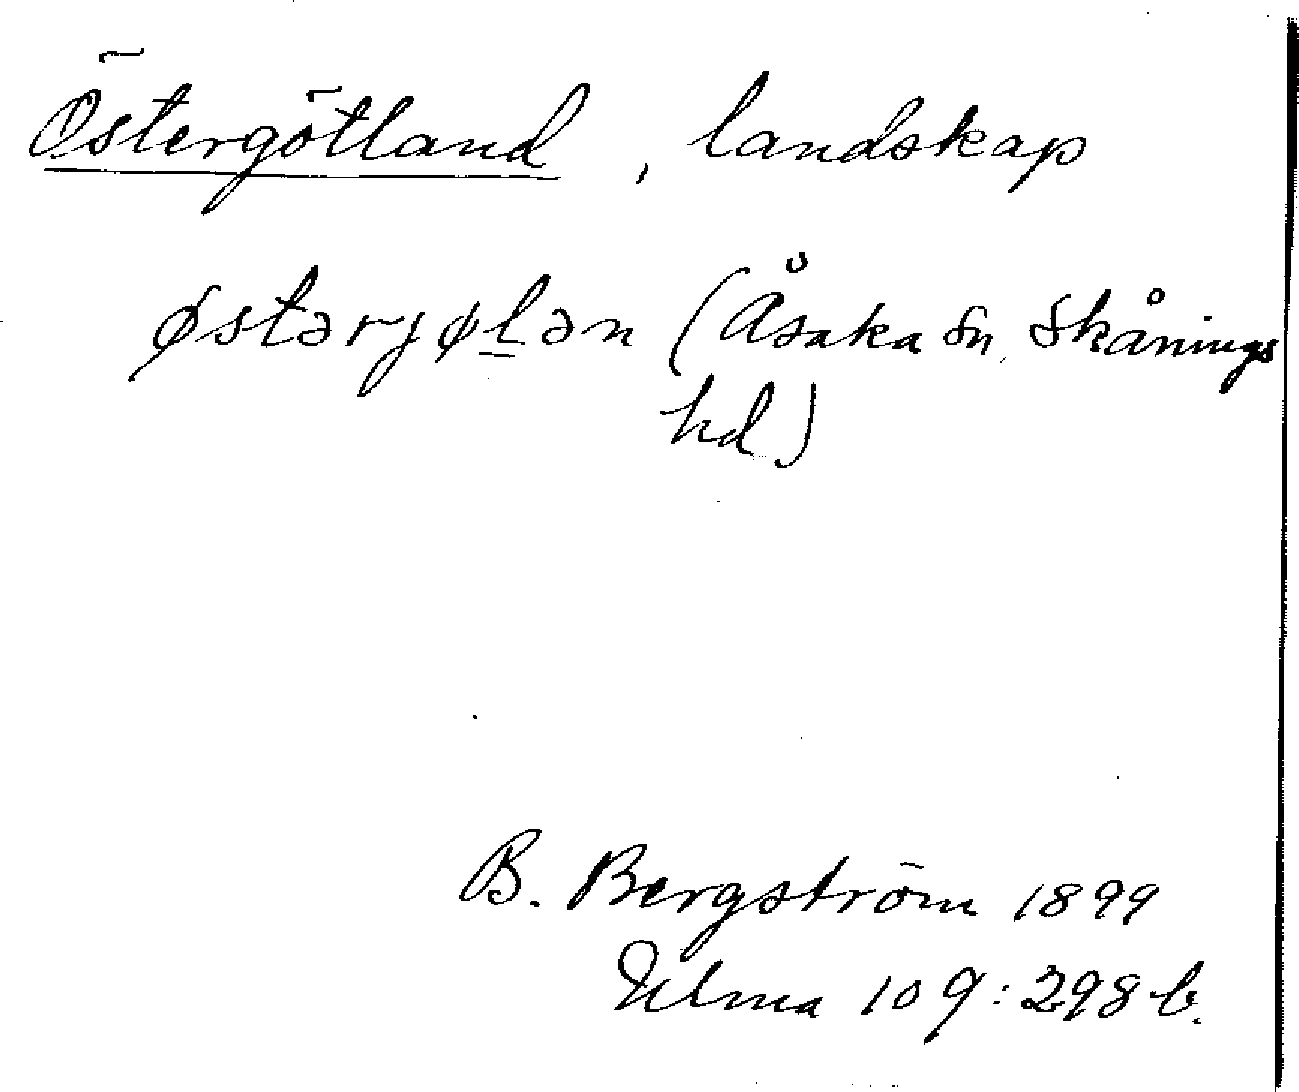 Östergötland, landskap
østərjøḻən (Åsaka sn, Skånings
hd)
B. Bergström 1899
Ulma 109:298 b.